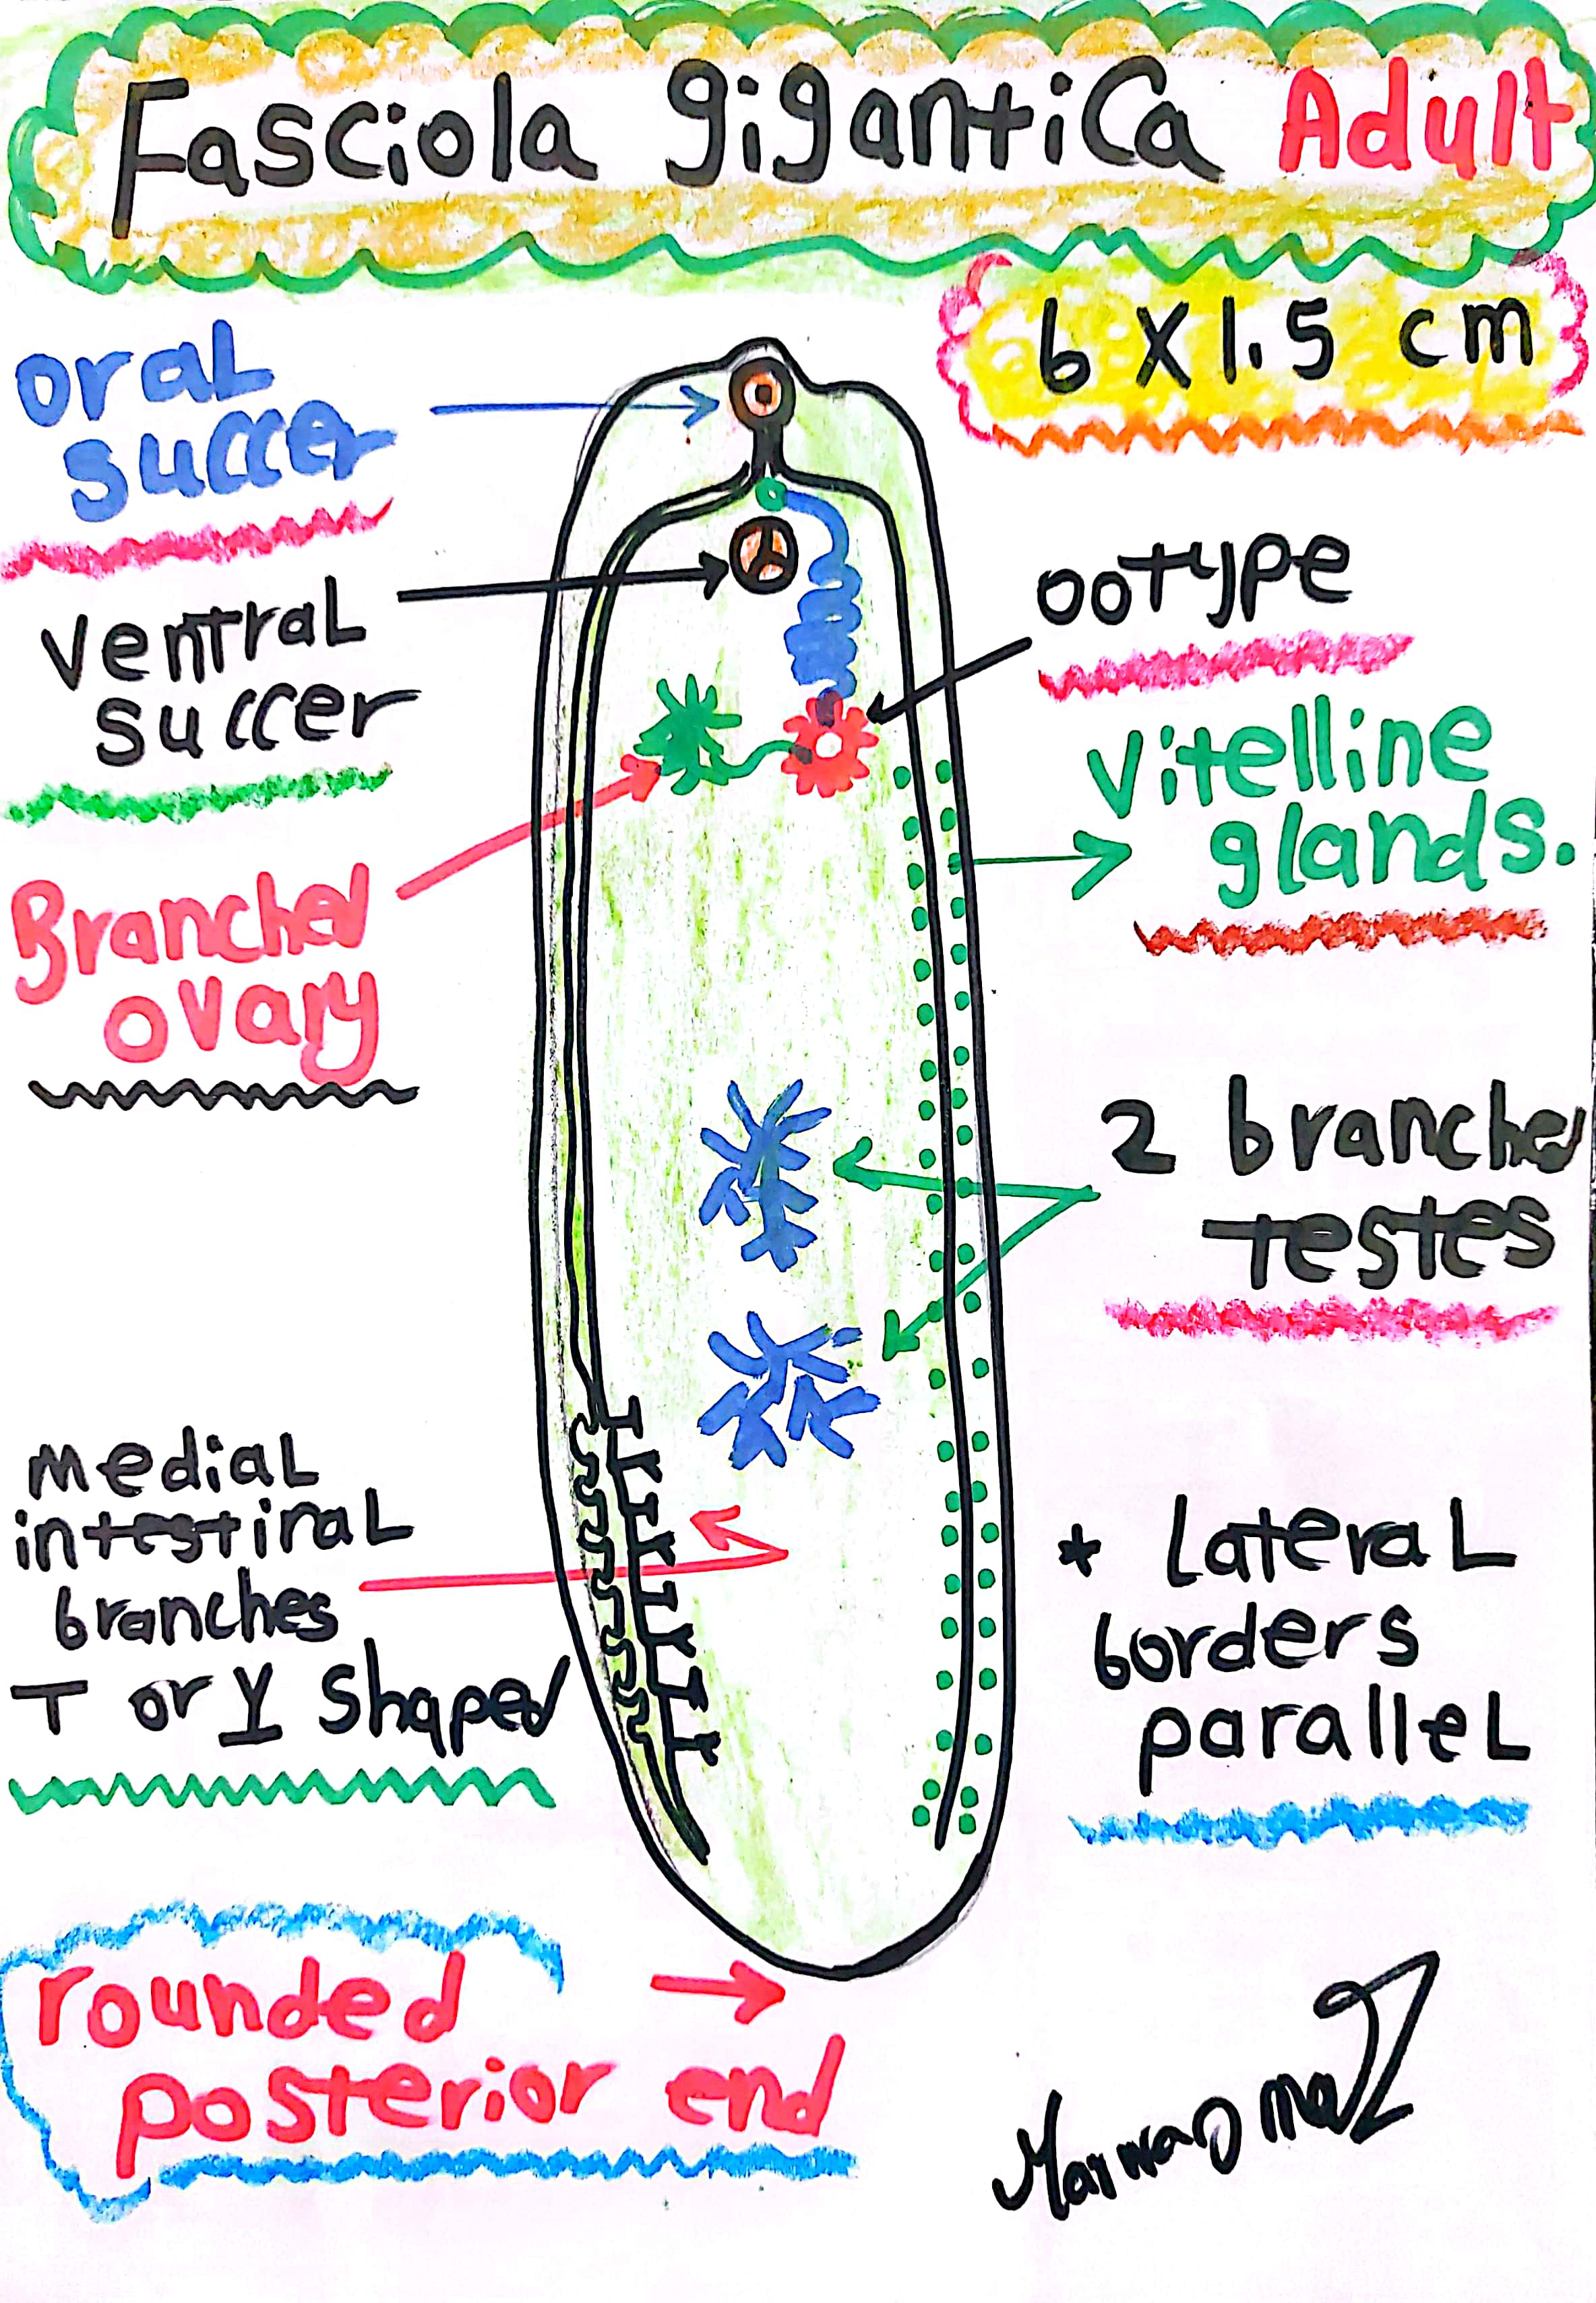 Fasciola gigantica Adult
6 X 1.5 cm
oral
succer
ventral
succer
ootype
Vitelline
glands.
Branched
ovary
2 branched
testes
medial
intestinal
branches
T or Y shaped
* lateral
borders
parallel
rounded
posterior end